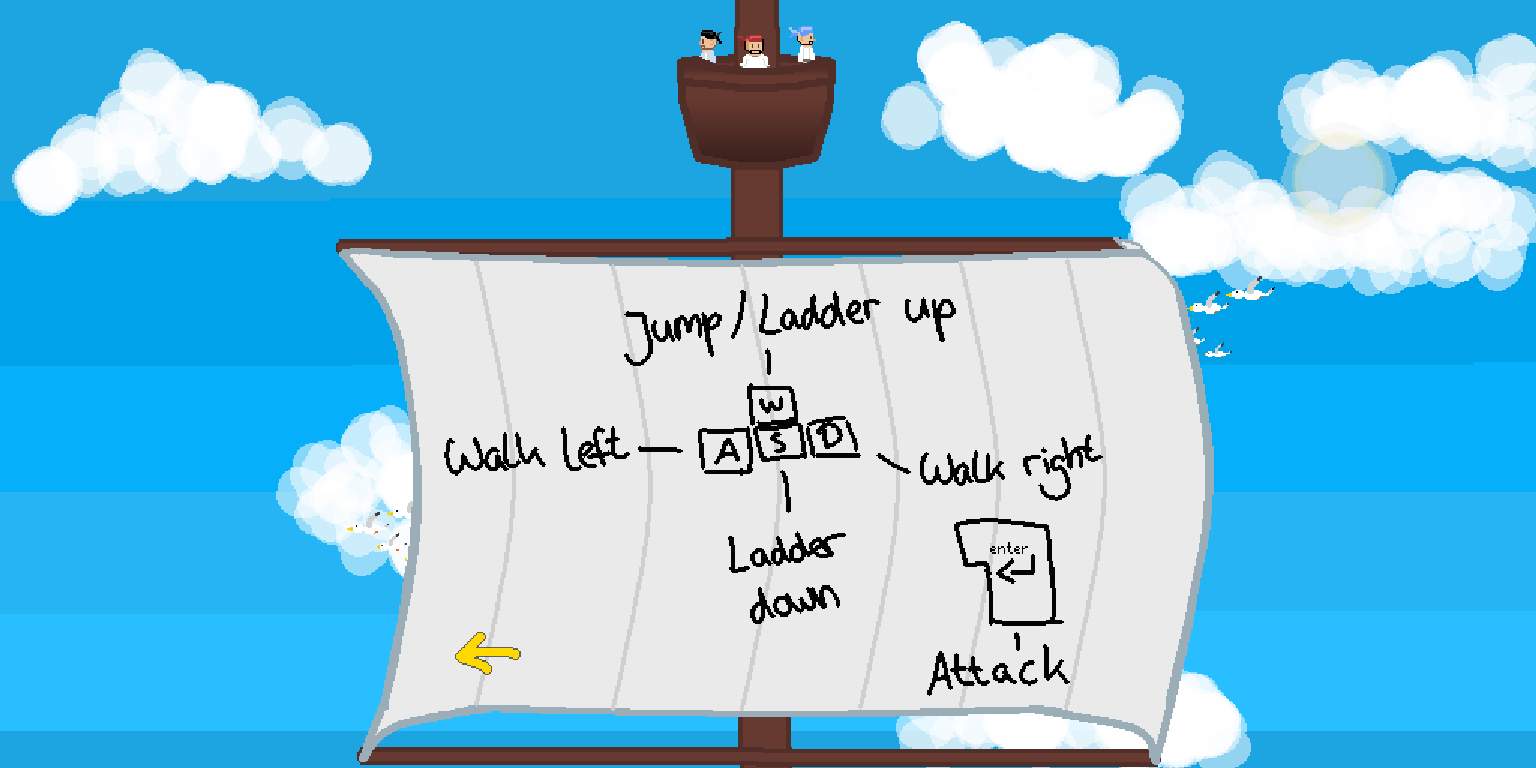 Jump/Ladder up
W
Walk left A S D Walk right
Ladder
down
enter
Attack